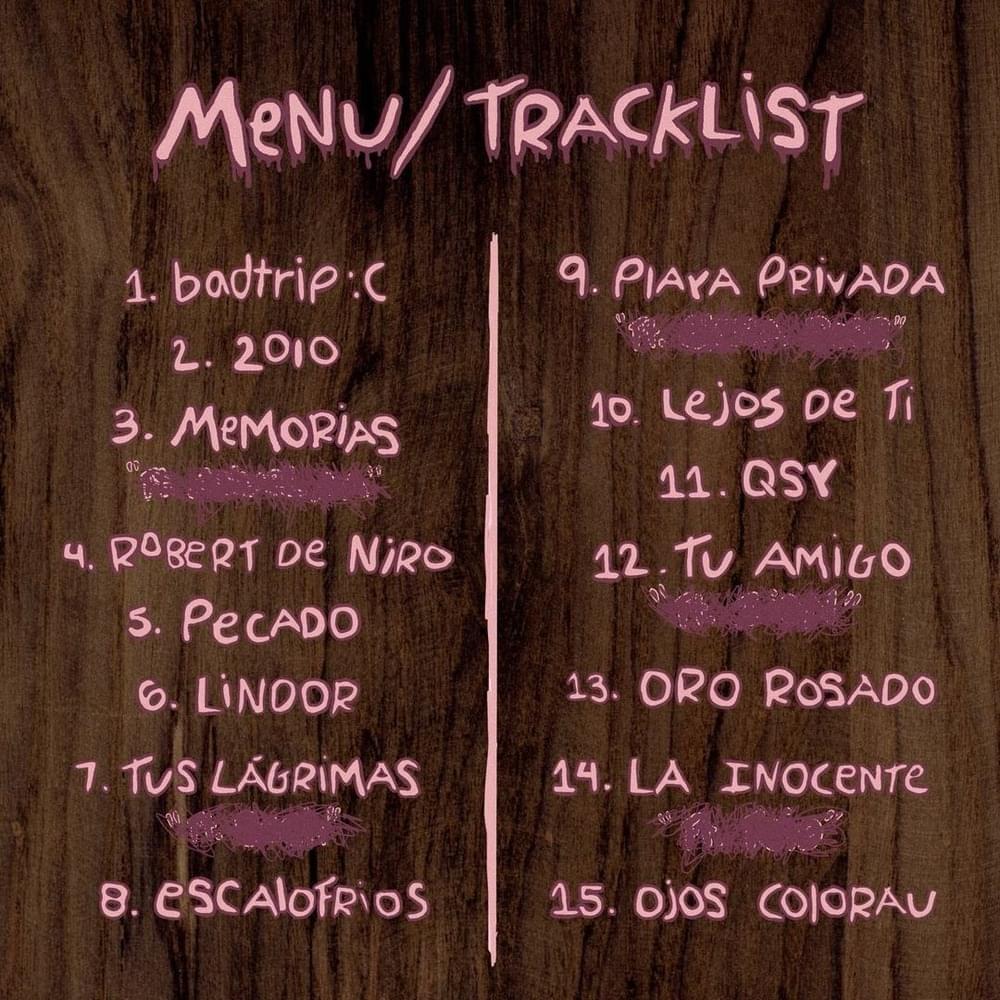 MeNU/TRACKLiST
1. badtrip :C
2. 2010
3. MeMORiAS
4. ROBeRT De NiRO
5. PeCADO
6. LiNDOR
7. TUS LÁGRiMAS
8. eSCAlOFRiOS
9. PlAYA PRiVADA
10. Lejos De Ti
11. QSY
12. TU AMiGO
13. ORO ROSADO
14. LA INOCeNTe
15. OjOS COlORAU